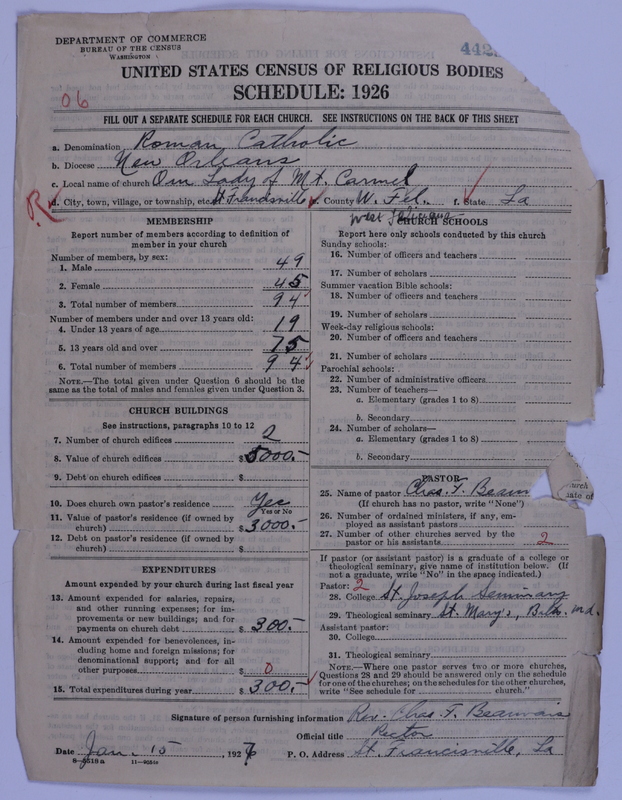 DEPARTMENT OF COMMERCE
BUREAU OF THE CENSUS
WASHINGTON
442
UNITED STATES CENSUS OF RELIGIOUS BODIES
SCHEDULE: 1926
06
FILL OUT A SEPARATE SCHEDULE FOR EACH CHURCH. SEE INSTRUCTIONS ON THE BACK OF THIS SHEET
a. Denomination Roman Catholic
b. Diocese New Orleans
c. Local name of church Our Lady of Mt. Carmel
d. City, town, village, or township, etc. St Francisville e. County W. Fel. f. State La
West Feliciana
MEMBERSHIP
Report number of members according to definition of member in your church
Number of members, by sex:
1. Male 49
2. Female 45
3. Total number of members 94
Number of members under and over 13 years old:
4. Under 13 years of age 19
5. 13 years old and over 75
6. Total number of members 94
NOTE.—The total given under Question 6 should be the same as the total of males and females given under Question 3.
CHURCH BUILDINGS
See instructions, paragraphs 10 to 12
7. Number of church edifices 2
8. Value of church edifices $ 5000.-
9. Debt on church edifices $
10. Does church own pastor's residence Yes
Yes or No
11. Value of pastor's residence (if owned by church) $ 3000.-
12. Debt on pastor's residence (if owned by church) $
EXPENDITURES
Amount expended by your church during last fiscal year
13. Amount expended for salaries, repairs, and other running expenses; for improvements or new buildings; and for payments on church debt $ 300.-
14. Amount expended for benevolences, including home and foreign missions; for denominational support; and for all other purposes $ 0
15. Total expenditures during year $ 300.-
CHURCH SCHOOLS
Report here only schools conducted by this church
Sunday schools:
16. Number of officers and teachers
17. Number of scholars
Summer vacation Bible schools:
18. Number of officers and teachers
19. Number of scholars
Week-day religious schools:
20. Number of officers and teachers
21. Number of scholars
Parochial schools:
22. Number of administrative officers
23. Number of teachers—
a. Elementary (grades 1 to 8)
b. Secondary
24. Number of scholars—
a. Elementary (grades 1 to 8)
b. Secondary
PASTOR
25. Name of pastor Chas. F. Beauv
(If church has no pastor, write "None")
26. Number of ordained ministers, if any, employed as assistant pastors
27. Number of other churches served by the pastor or his assistants 2
If pastor (or assistant pastor) is a graduate of a college or theological seminary, give name of institution below. (If not a graduate, write "No" in the space indicated.)
Pastor: 2
28. College St. Joseph Seminary
29. Theological seminary St. Mary's, Balto. Md.
Assistant pastor:
30. College
31. Theological seminary
NOTE.—Where one pastor serves two or more churches, Questions 28 and 29 should be answered only on the schedule for one of the churches; on the schedules for the other churches, write "See schedule for church."
Signature of person furnishing information Rev. Chas. F. Beauvais
Official title Rector
Date Jan. 15, 1927 P. O. Address St. Francisville, La
8—5518a 11—9051a